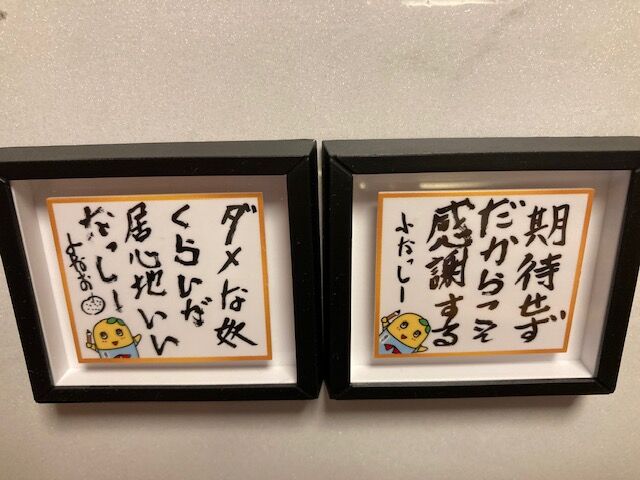 ダメな奴
くらいが
居心地いい
なっしー
期待せず
だからこそ
感謝する
ふなっしー